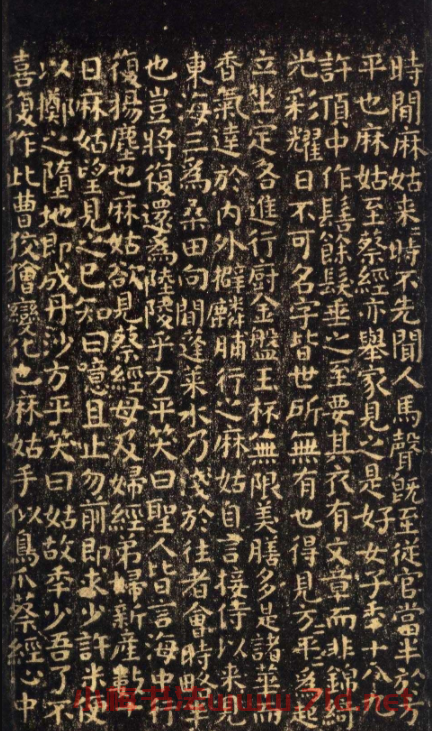 時間麻姑來來時不先聞人馬聲既至從官當半於方
平也麻姑至蔡經亦舉家見之是好女子年十八九
許頂中作髻餘髮垂之至要其衣有文章而非錦綺
光彩耀日不可名字皆世所無有也得見方平方平為起
立坐定各進行廚金盤玉杯無限美膳多是諸華而
香氣達於內外擗麟脯行之麻姑自言接侍以來見
東海三為桑田向間蓬萊水乃淺於往者會時略半
也豈將復還為陸陵乎方平笑曰聖人皆言海中行
復揚塵也麻姑欲見蔡經母及婦經弟婦新產數十
日麻姑望見之已知曰噫且止勿前即求少許米便
以擲之墮地即成丹沙方平笑曰姑故年少吾了不
喜復作此曹狡獪變化也麻姑手似鳥爪蔡經心中
小楷书法www.7id.net